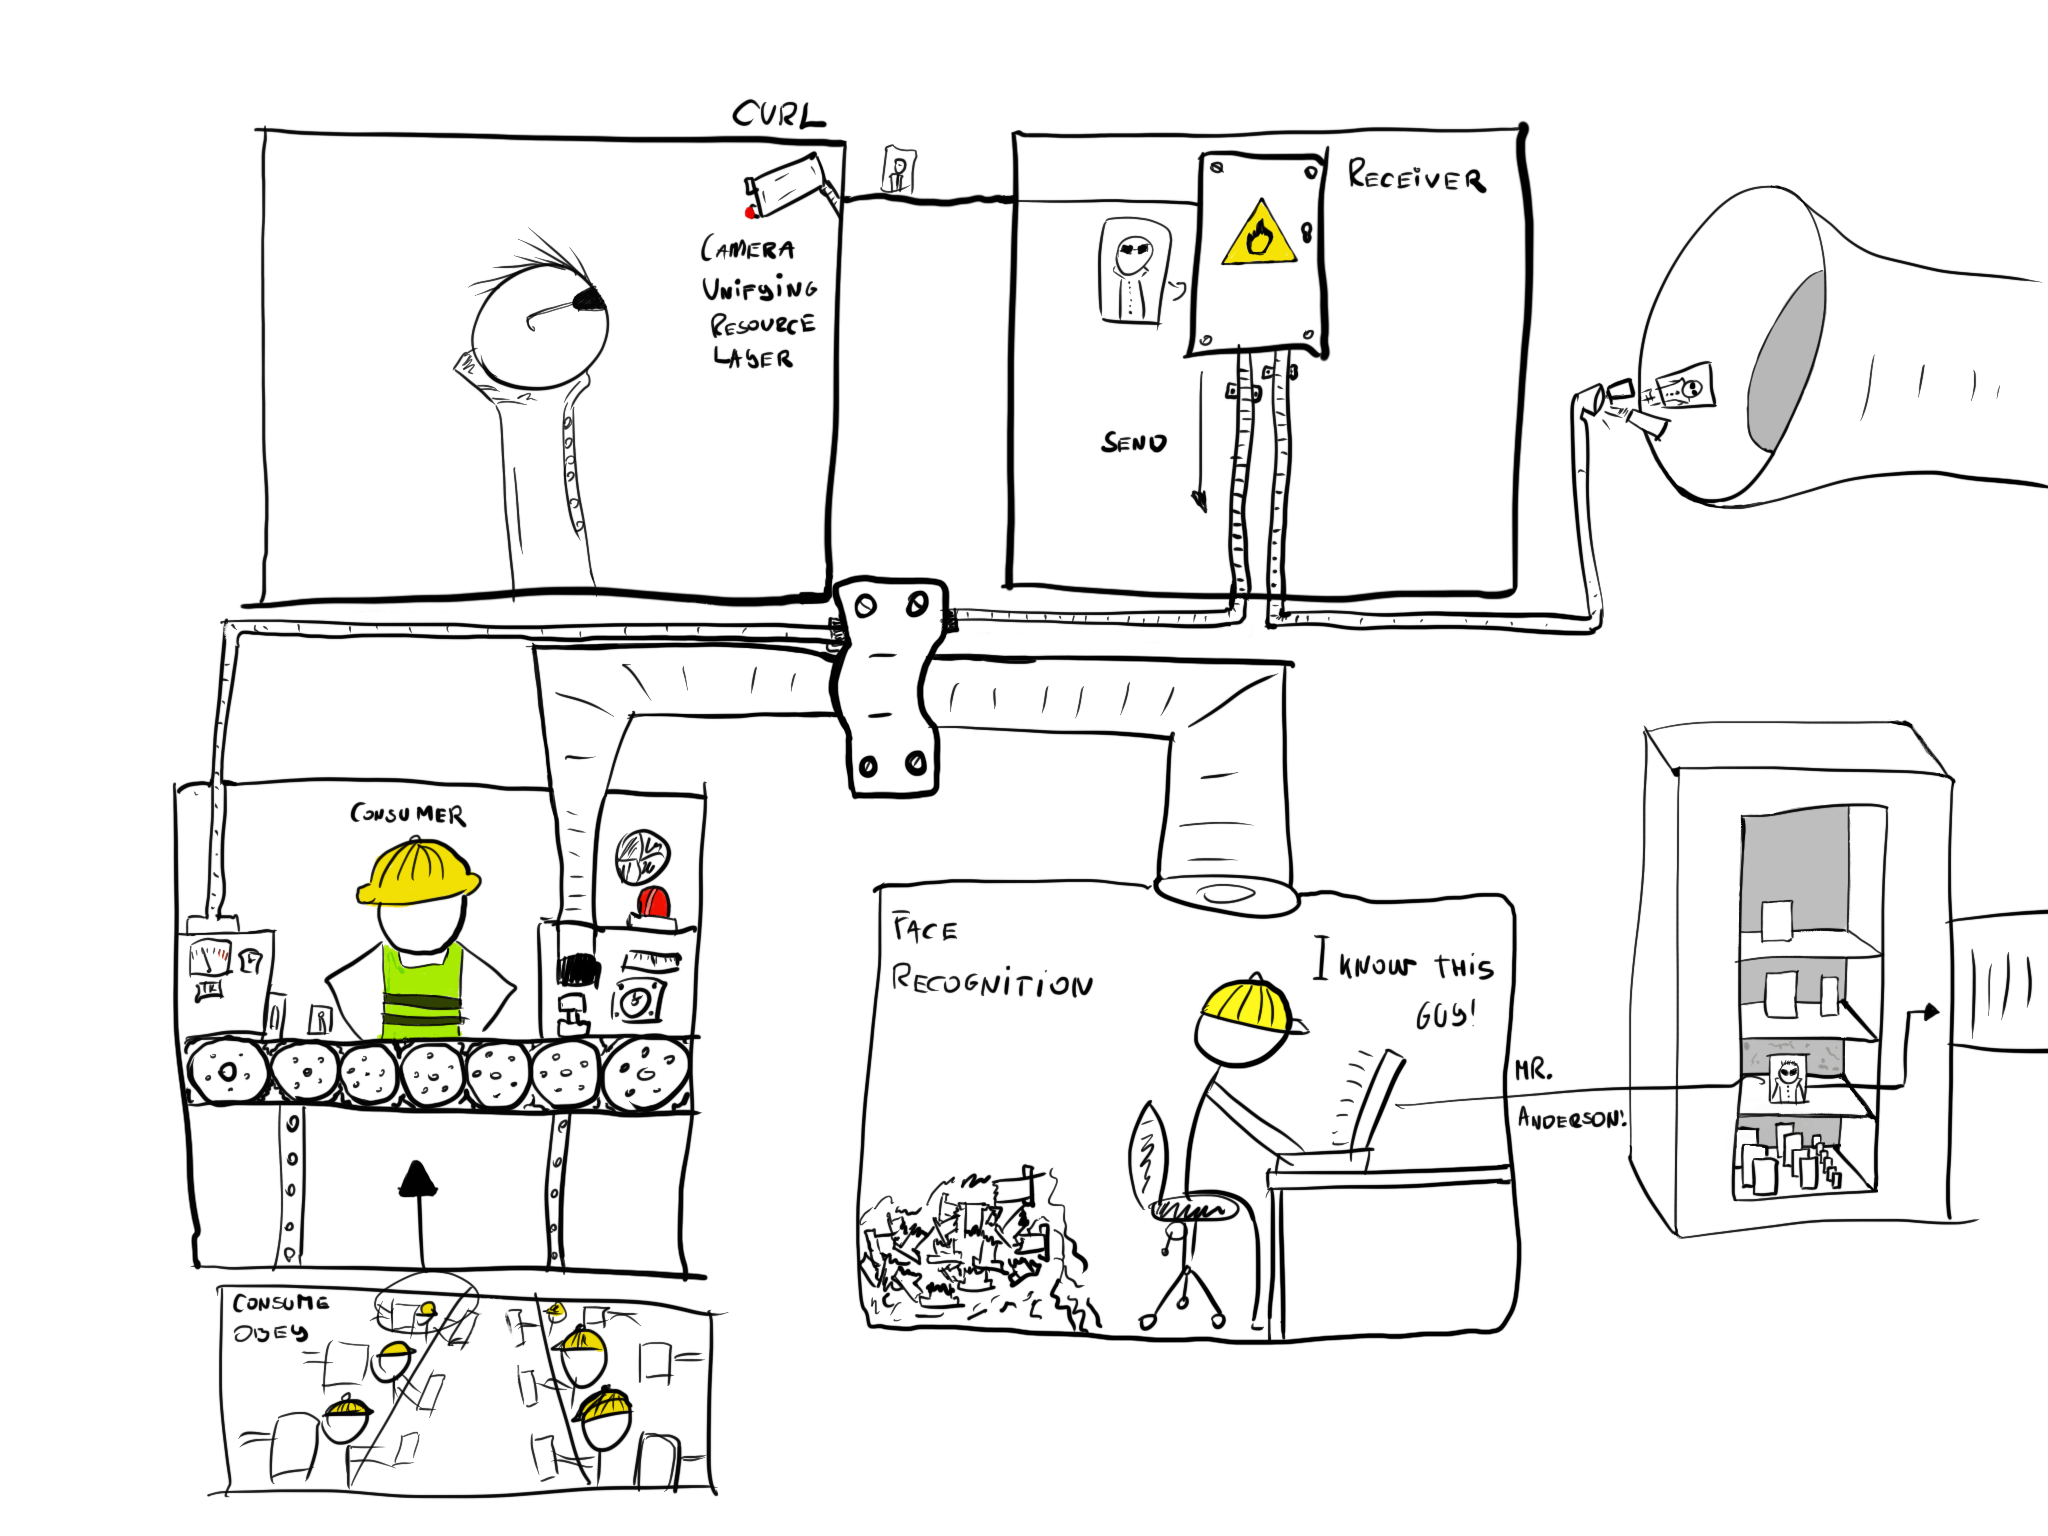 CURL
CAMERA
UNIFYING
RESOURCE
LAYER
RECEIVER
SEND
CONSUMER
FACE
RECOGNITION
I KNOW THIS
GUY!
MR.
ANDERSON!
CONSUME
OBEY